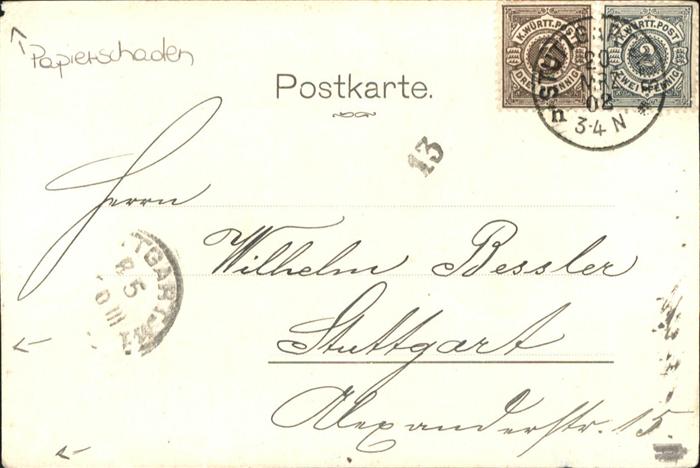 Papierschaden
K. WÜRTT. POST
DREI PFENNIG
K. WÜRTT. POST
2
ZWEI PFENNIG
STUTTGART
20
MRZ
02
3-4 N
n
Postkarte.
13
Herrn
Wilhelm Bessler
TTGART
5
III
Stuttgart
Alexanderstr. 15.